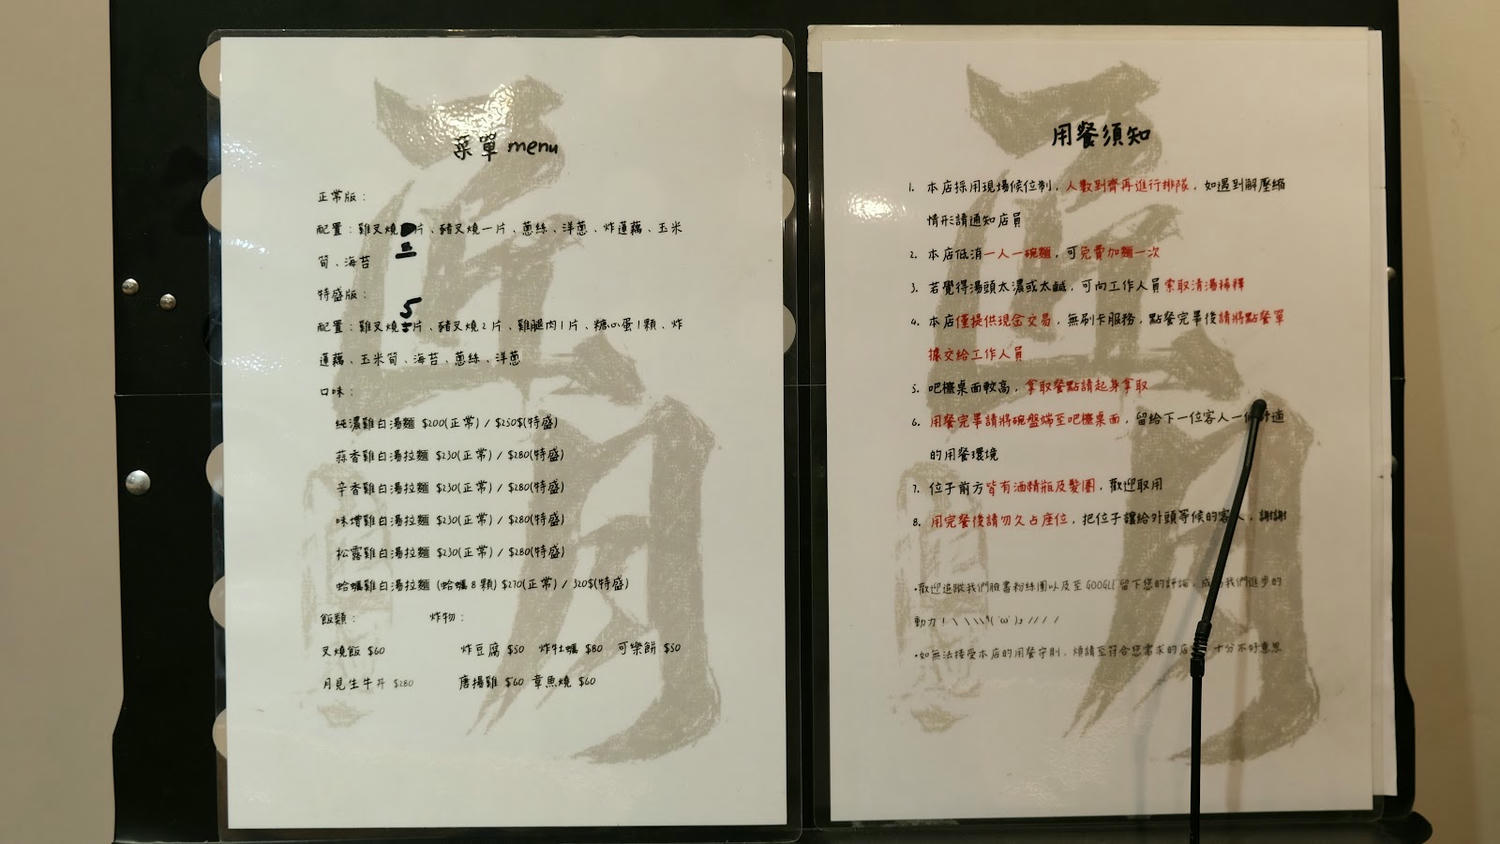 菜單 menu
正常版：
配置：雞叉燒三片、豬叉燒一片、蔥絲、洋蔥、炸蓮藕、玉米
筍、海苔
特盛版：
配置：雞叉燒5片、豬叉燒2片、雞腿肉1片、糖心蛋1顆、炸
蓮藕、玉米筍、海苔、蔥絲、洋蔥
口味：
純濃雞白湯麵 $200(正常) / $250$(特盛)
蒜香雞白湯拉麵 $230(正常) / $280(特盛)
辛香雞白湯拉麵 $230(正常) / $280(特盛)
味增雞白湯拉麵 $230(正常) / $280(特盛)
松露雞白湯拉麵 $230(正常) / $280(特盛)
蛤蠣雞白湯拉麵 (蛤蠣8顆) $270(正常) / 320$(特盛)
飯類： 炸物：
叉燒飯 $60 炸豆腐 $50 炸牡蠣 $80 可樂餅 $50
月見生牛丼 $280 唐揚雞 $60 章魚燒 $60
用餐須知
1. 本店採用現場候位制，人數到齊再進行排隊，如遇到解壓縮
情形請通知店員
2. 本店低消一人一碗麵，可免費加麵一次
3. 若覺得湯頭太濃或太鹹，可向工作人員索取清湯稀釋
4. 本店僅提供現金交易，無刷卡服務，點餐完畢後請將點餐單
據交給工作人員
5. 吧檯桌面較高，拿取餐點請起身拿取
6. 用餐完畢請將碗盤端至吧檯桌面，留給下一位客人一個舒適
的用餐環境
7. 位子前方皆有酒精瓶及髮圈，歡迎取用
8. 用完餐後請勿久占座位，把位子讓給外頭等候的客人，謝謝
•歡迎追蹤我們臉書粉絲團以及至GOOGLE留下您的評論，成為我們進步的
動力！\ \ \\٩( 'ω' )و ////
•如無法接受本店的用餐守則，煩請至符合您需求的店家，十分不好意思